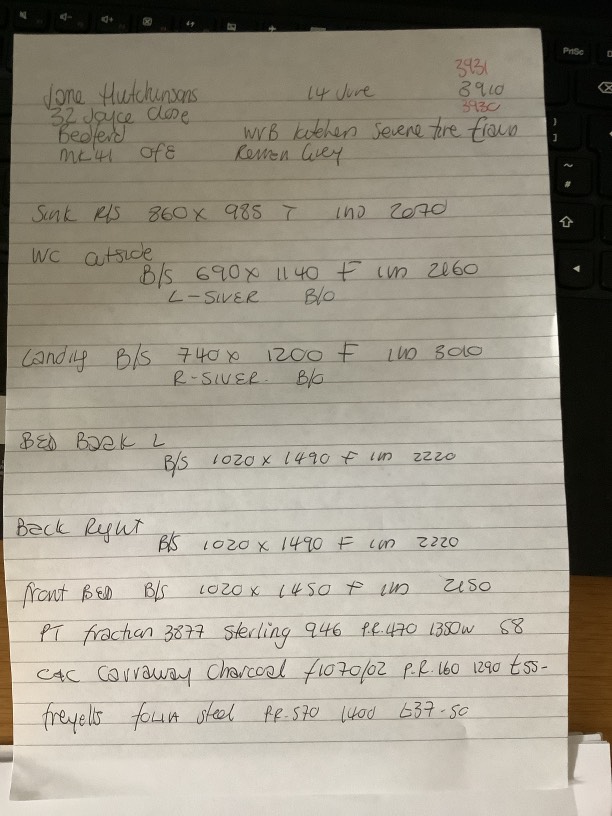 3931
Jane Hutchinsons 14 June 3910
32 Joyce Close 3930
Bedford WVB kitchen Severe fire
MK41 0FE Grey
Sink R/S 860 x 985 T IND 2070
WC outside
B/S 690 x 1140 F IND 2160
L-SIVER B/O
Landing B/S 740 x 1200 F IND 3010
R-SIVER B/O
BED Back L
B/S 1020 x 1490 F IND 2220
Back Right
B/S 1020 x 1490 F IND 2220
front BED B/S 1020 x 1450 F IND 2150
PT fraction 3877 Sterling 946 P.R.470 1350w 58
C&C Carraway Charcoal f1070/02 P.R.160 1290 £55-
freyells steel P.R.570 1400 £37-50
PrtSc